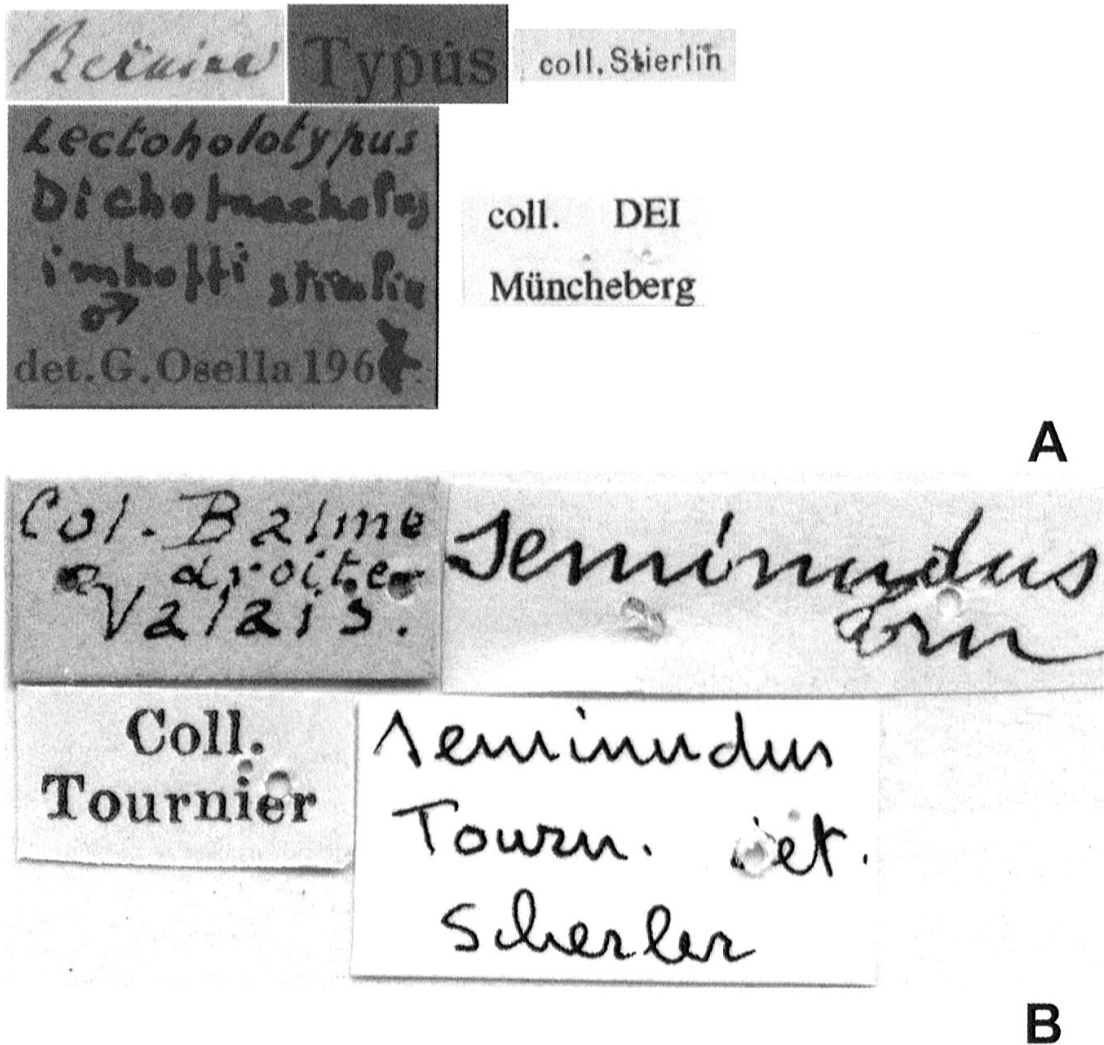 Bernina
Typus
coll. Stierlin
Lectoholotypus
Dichotrachelus
imhoffi stierlin
♂
det. G. Osella 1967.
coll. DEI
Müncheberg
A
Col. Balme
droite
Valais.
Seminudus
Trn
Coll.
Tournier
Seminudus
Tourn. det.
Scherler
B